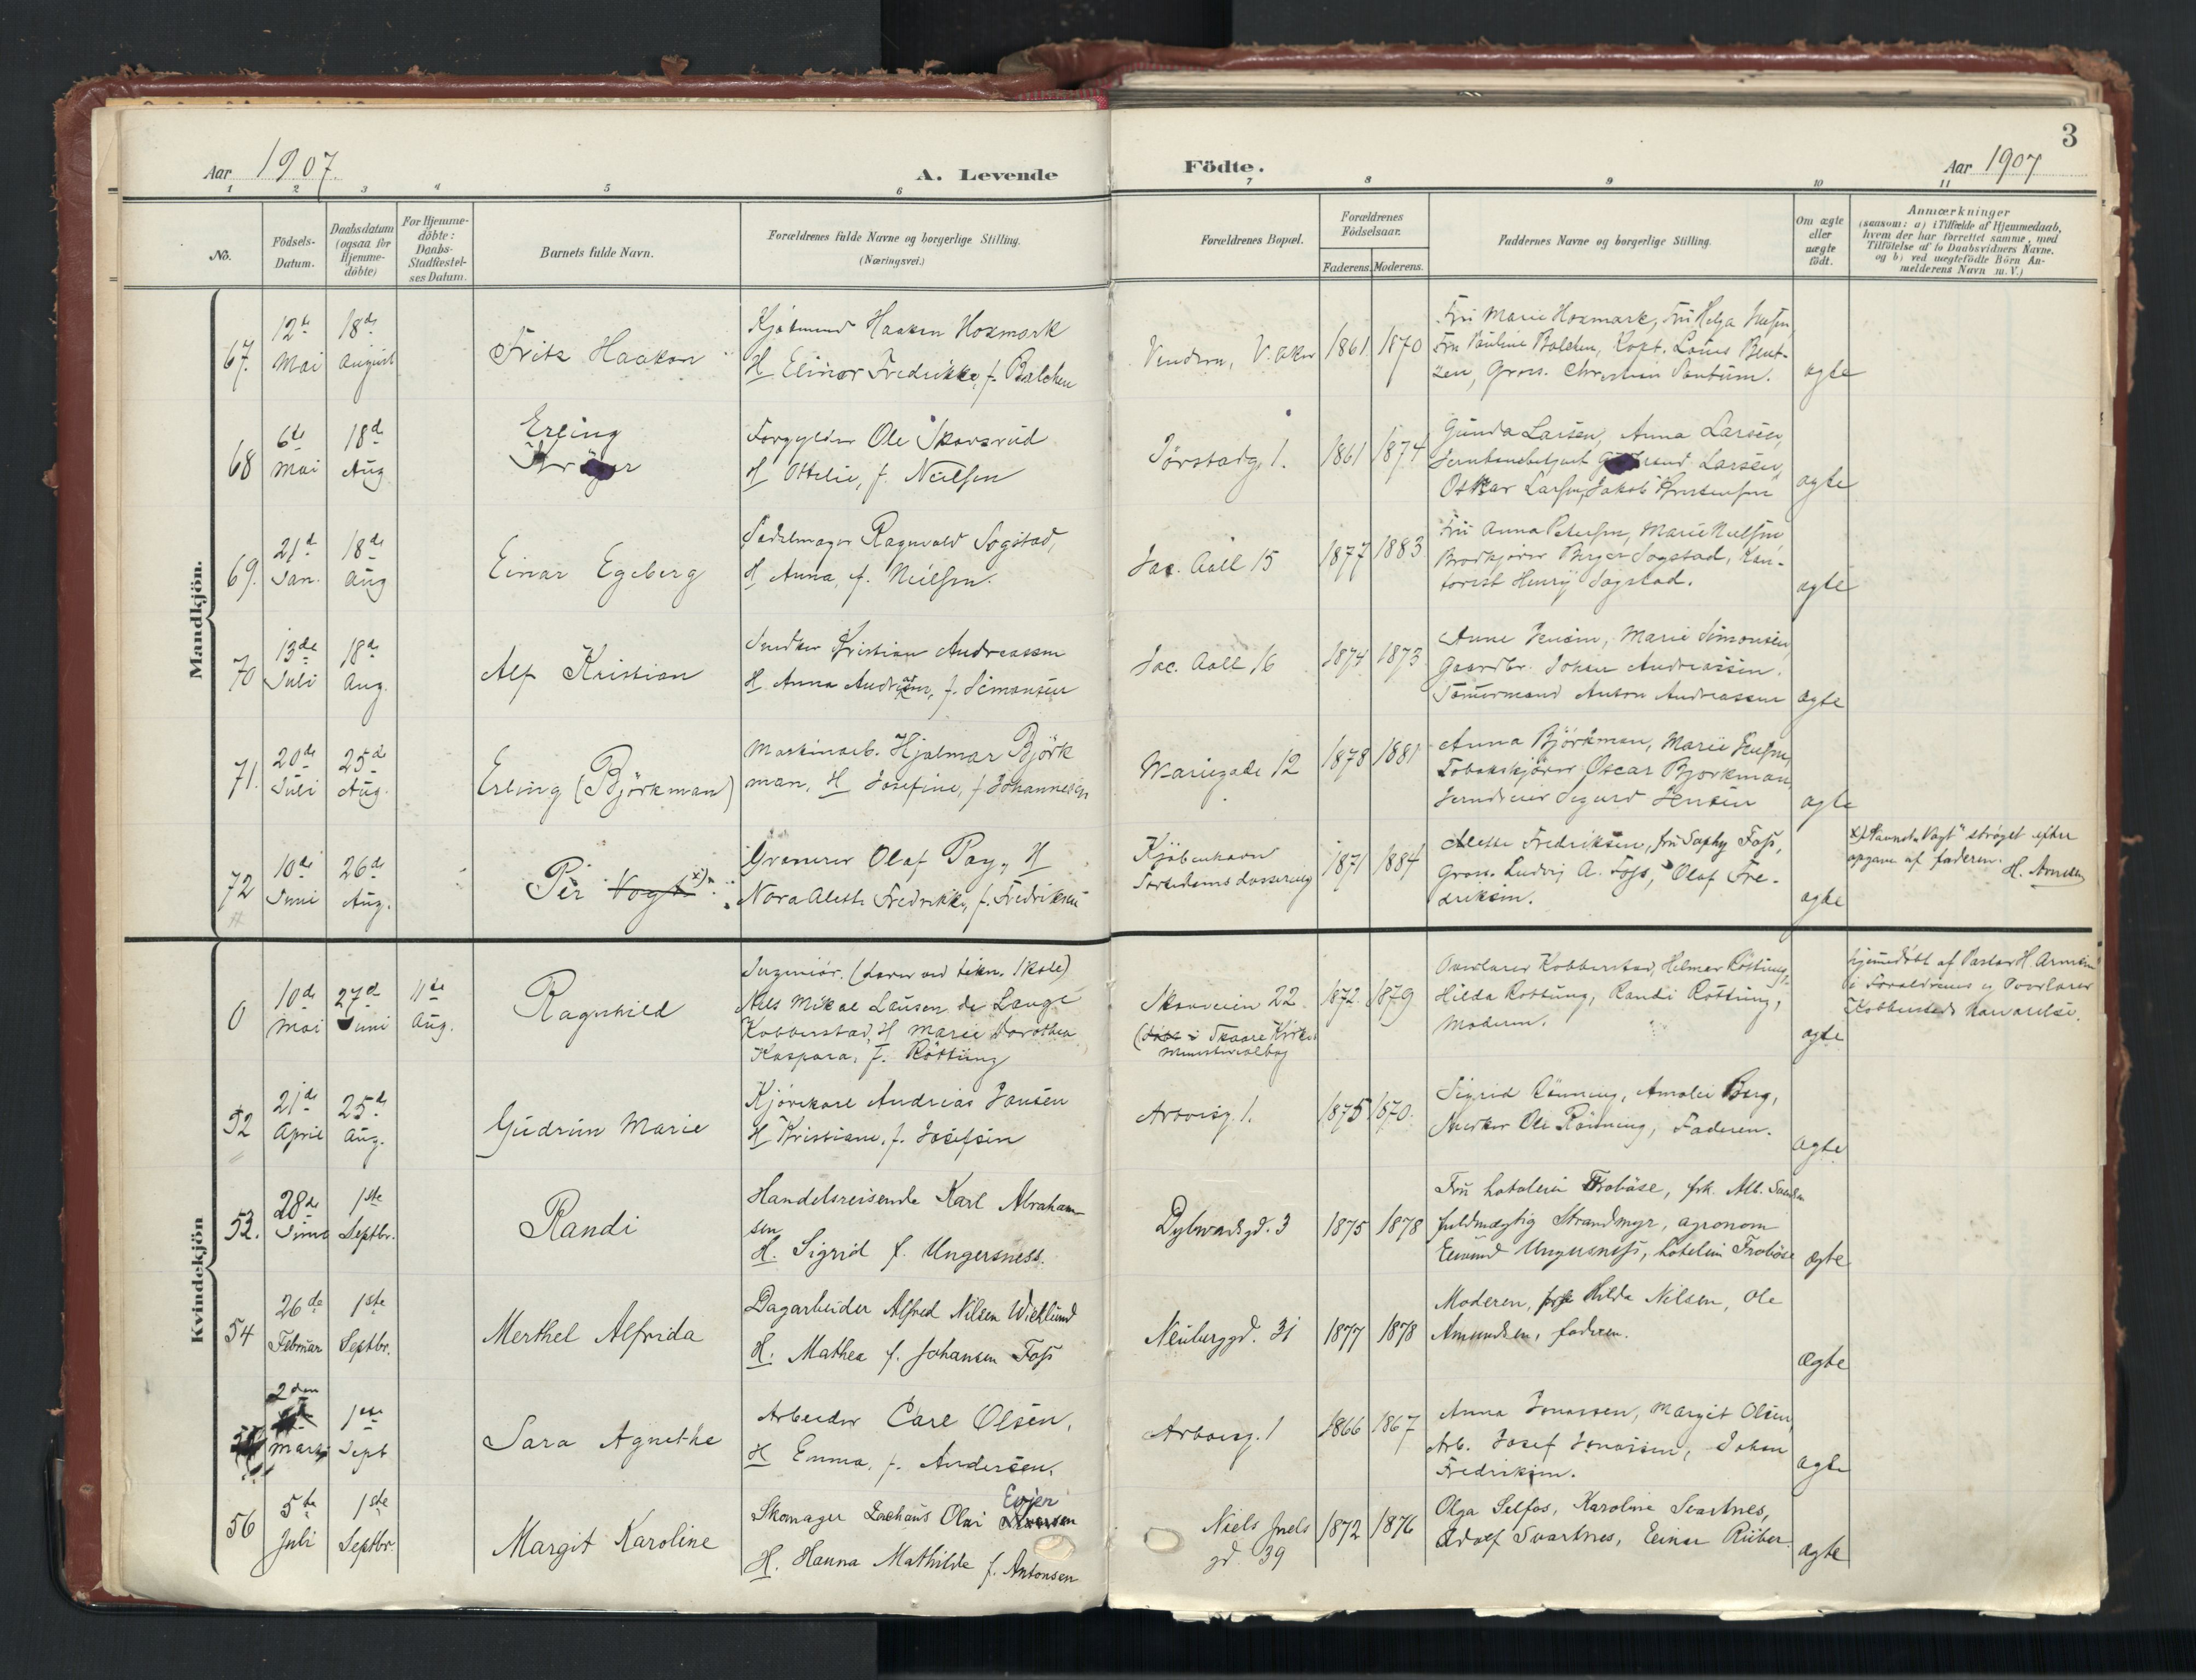 Aar 1907.
A. Levende
Födte.
Aar 1907
3
1 2 3 4 5 6 7 8 9 10 11
No.
Födsels-
Datum.
Daabsdatum
(ogsaa for
Hjemme-
döbte)
For Hjemme-
döbte:
Daabs-
Stadfæstel-
ses Datum.
Barnets fulde Navn.
Forældrenes fulde Navne og borgerlige Stilling.
(Næringsvei.)
Forældrenes Bopæl.
Forældrenes
Födselsaar.
Faderens. Moderens.
Faddernes Navne og borgerlige Stilling.
Om ægte
eller
uægte
födt.
Anmærkninger
(saasom: a) i Tilfælde af Hjemmedaab,
hvem der har forrettet samme, med
Tilföielse af to Daabsvidners Navne.
og b) ved uægtefödte Börn An-
melderens Navn m. V.)
Mandkjön.
67.
12te
Mai
18de
August
Fritz Haakon
Haaken Hoxmark
H Elinor Fredrikke, f. Balchen
Vinderen, V. Aker
1861 1870
Fru Marie Hoxmark, Fru Helga
Fru Pauline Balchen, Kapt. Louis Bent-
zen, Gross. Christian
ægte
68
6te
Mai
18de
Aug
Erling
Ole Skarsrud
H Ottilie, f. Nielsen
Jörstadg. 1.
1861 1874
Gunda Larsen, Anna Larsen,
Larsen,
Oskar Larsen, Jakob
ægte
69.
21de
Jan.
18de
Aug
Einar Egeberg
Sadelmager Ragnvald Sogstad,
H Anna, f. Nielsen.
Jac. Aall 15
1877 1883
Fru Anna Petersen, Marie Nielsen
Brödkjører Birger Sogstad, Kon-
torist Henry Sogstad.
ægte
70
13de
Juli
18de
Aug.
Alf Kristian
Snedker Kristian Andreassen
H. Anna Andreassen, f. Simonsen
Jac. Aall 16
1874 1873
Anne Jensen, Marie Simonsen,
Gaardbr. Johan Andreassen.
Tömmermand Anton Andreassen
ægte
71.
20de
Juli
25de
Aug.
Erling (Björkman)
Maskinarb. Hjalmar Björk
man, H Josefine, f. Johannesen
Mariegade 12
1878 1881
Anna Björkman, Marie Jensen,
Tobakskjører Oscar Bjorkman
Jerndreier Sigurd Jensen
ægte
72
10de
Juni
26de
Aug.
Per Vogt x)
Graverer Olaf Pay, H
Nora Alette Fredrikke, f. Fredriksen
Kjöbenhavn
Sortedams dossering
1871 1884
Alette Fredriksen, Fru Saphy Foss,
Gross. Ludvig A. Foss, Olaf Fre-
driksen.
ægte
x) Navnet "Vogt" strøget efter
opgave af faderen.
Kvindekjön
0
10de
Mai
27de
Juni
11te
Aug.
Ragnhild
Ingeniör. (Lærer ved tekn. Skole)
Nils Mikal Lausen de Lange
Kobberstad, H Marie Dorothea
Kaspara, f. Röttung
Skovveien 22
(döbt i Skaare Kirkes
Ministerialbog
1872. 1879
Overlærer Kobberstad, Helmer Röttung,
Hilda Rottung, Randi Röttung,
Moderen.
ægte
hjemmedöbt af Pastor H.
i Forældrenes og Overlærer
Kobberstads nærværelse.
52
21de
April
25de
Aug.
Gudrun Marie
Kjörekarl Andreas Jansen
H Kristiane, f. Josefsen
Arboesg. 1.
1875 1870.
Sigrid Rönning, Amalie Berg,
Snedker Ole Rönning, Faderen.
ægte
53.
28de
Juni
1ste
Septbr.
Randi
Handelsreisende Karl Abraham-
sen
H. Sigrid f. Ungersness.
Dybwadsgd. 3
1875 1878
Fru hoteleier Froböse, frk. Alb.
fuldmægtig Strandmyr, agronom
Ungersness, hoteleier Froböse
ægte
54
26de
Februar
1ste
Septbr.
Merthel Alfrida
Dagarbeider Alfred Nilsen Wiklund
H. Mathea f. Johansen Foss
Neuberggd. 31
1877 1878
Moderen, frk Hilda Nilsen, Ole
Amundsen, faderen.
Ægte
2den
Marts
1ste
Sept
Sara Agnethe
Arbeider Carl Olsen,
H Emma, f. Andersen.
Arboesg. 1
1866 1867
Anna Jonassen, Margit Olsen,
Arb. Josef Jonassen, Johan
Fredriksen.
ægte
56
5te
Juli
1ste
Septbr.
Margit Karoline
Skomager Zachæus Olai Evjen
H. Hanna Mathilde f. Antonsen
Niels Juels
gd. 39
1872 1876
Olga Selfos, Karoline Svartnes,
Adolf Svartnes, Einar
ægte